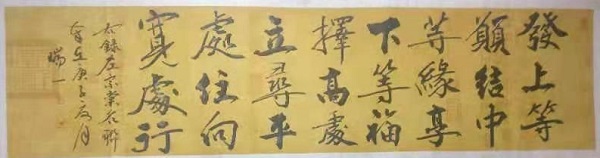 發上等
願結中
等緣享
下等福
擇高處
立尋平
處住向
寬處行
右錄左宗棠名聯
在庚子夏月
瑞一